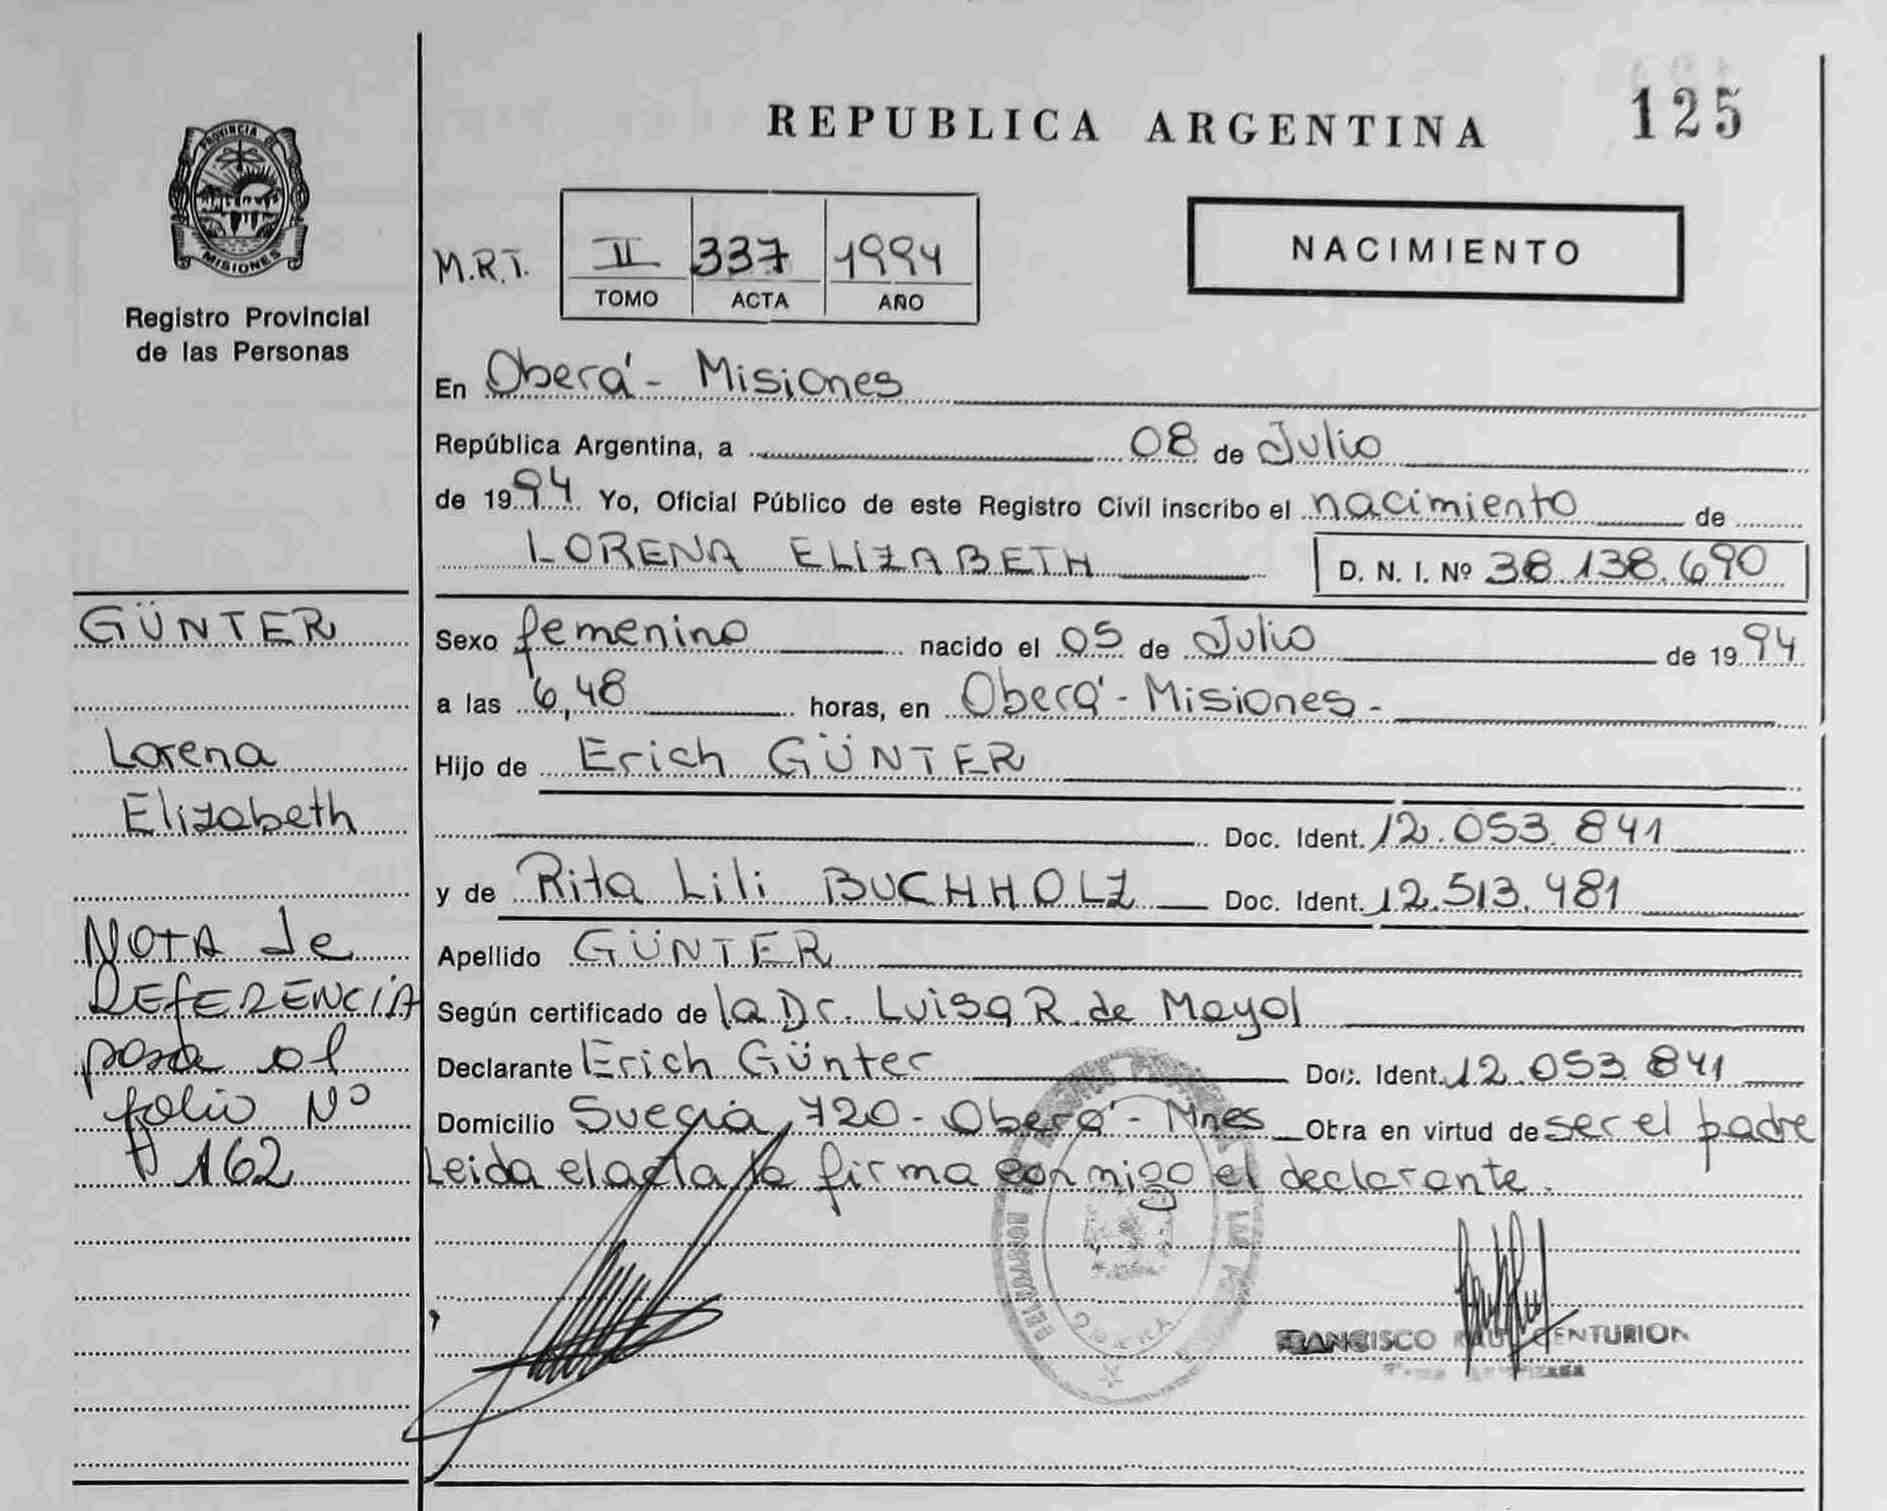 REPUBLICA ARGENTINA
125
PROVINCIA DE
MISIONES
Registro Provincial
de las Personas
M.R.T.
II 337 1994
TOMO ACTA AÑO
NACIMIENTO
En Oberá - Misiones
República Argentina, a 08 de Julio
de 1994 Yo, Oficial Público de este Registro Civil inscribo el nacimiento de
LORENA ELIZABETH D. N. I. Nº 38.138.690
GÜNTER
Lorena
Elizabeth
NOTA de
REFERENCIA
pasa al
folio Nº
162
Sexo femenino nacido el 05 de Julio de 1994
a las 6,48 horas, en Oberá - Misiones -
Hijo de Erich GÜNTER
Doc. Ident. 12.053.841
y de Rita Lili BUCHHOLZ Doc. Ident. 12.513.481
Apellido GÜNTER
Según certificado de la Dr. Luisa R. de Mayol
Declarante Erich Günter Doc. Ident. 12.053 841
Domicilio Suecia 720 - Oberá - Mnes Obra en virtud de ser el padre
Leida el acta la firma conmigo el declarante.
OBERA
FRANCISCO RAUL CENTURION